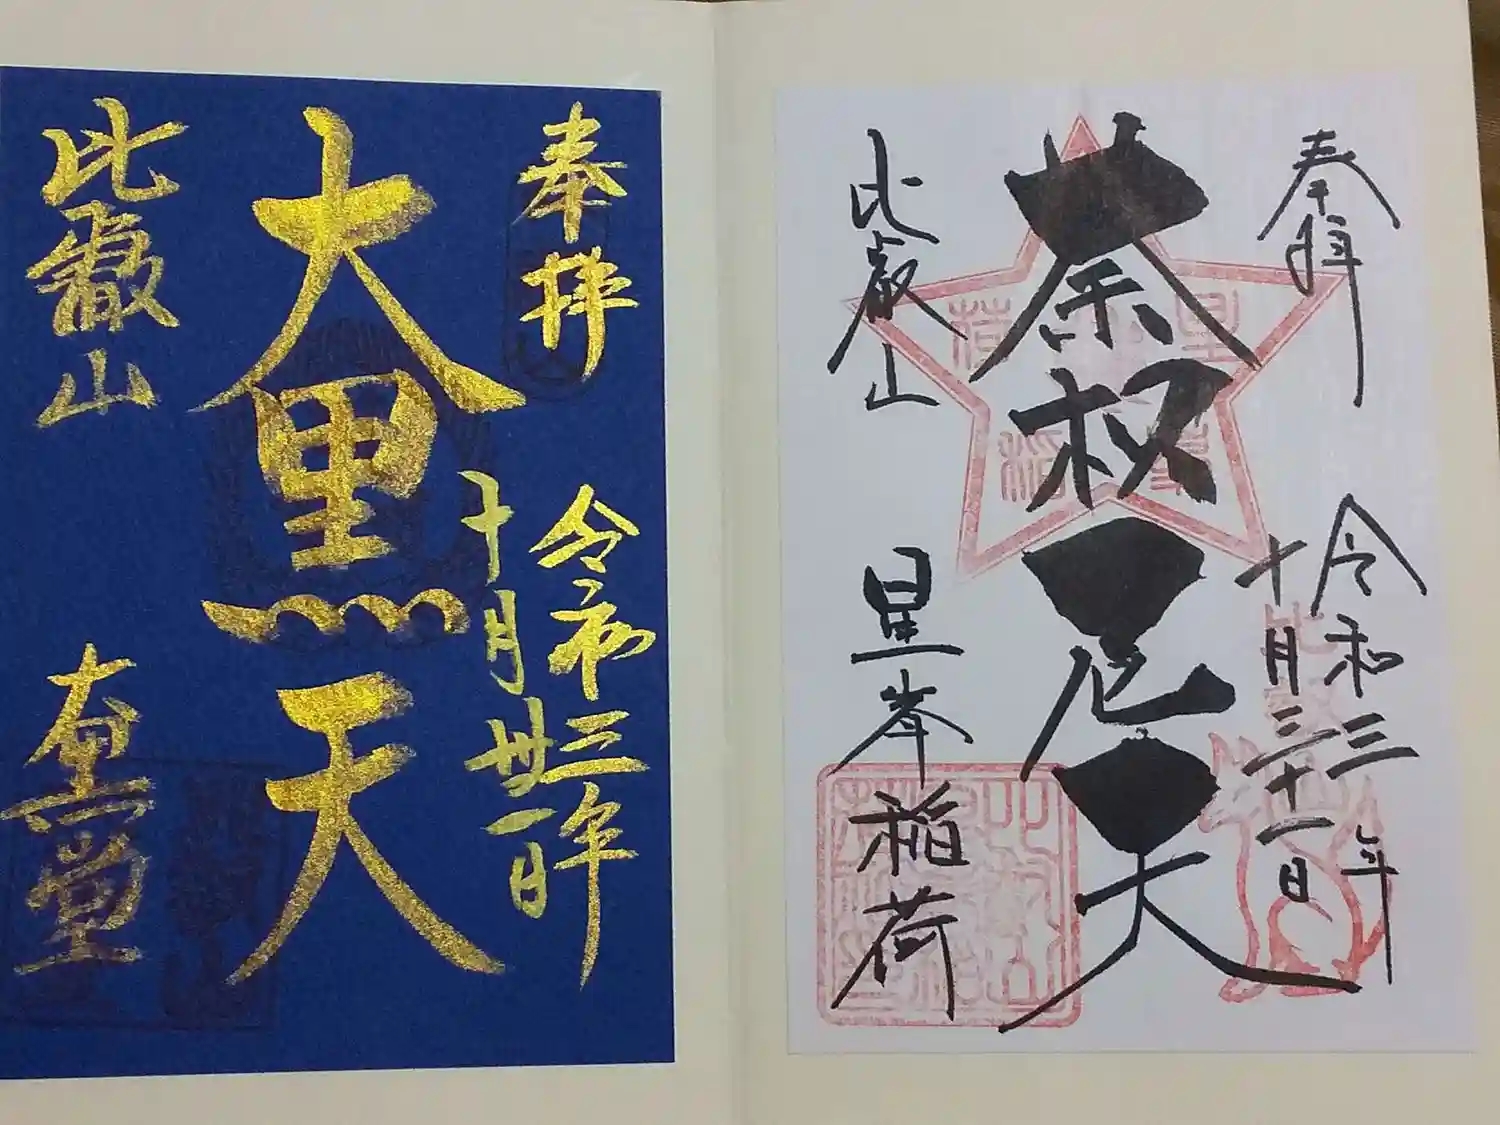 奉拝
令和三年
十月三十一日
荼枳尼天
比叡山
星峯稲荷
奉拝
令和三年
十月丗一日
大黒天
比叡山
大黒堂